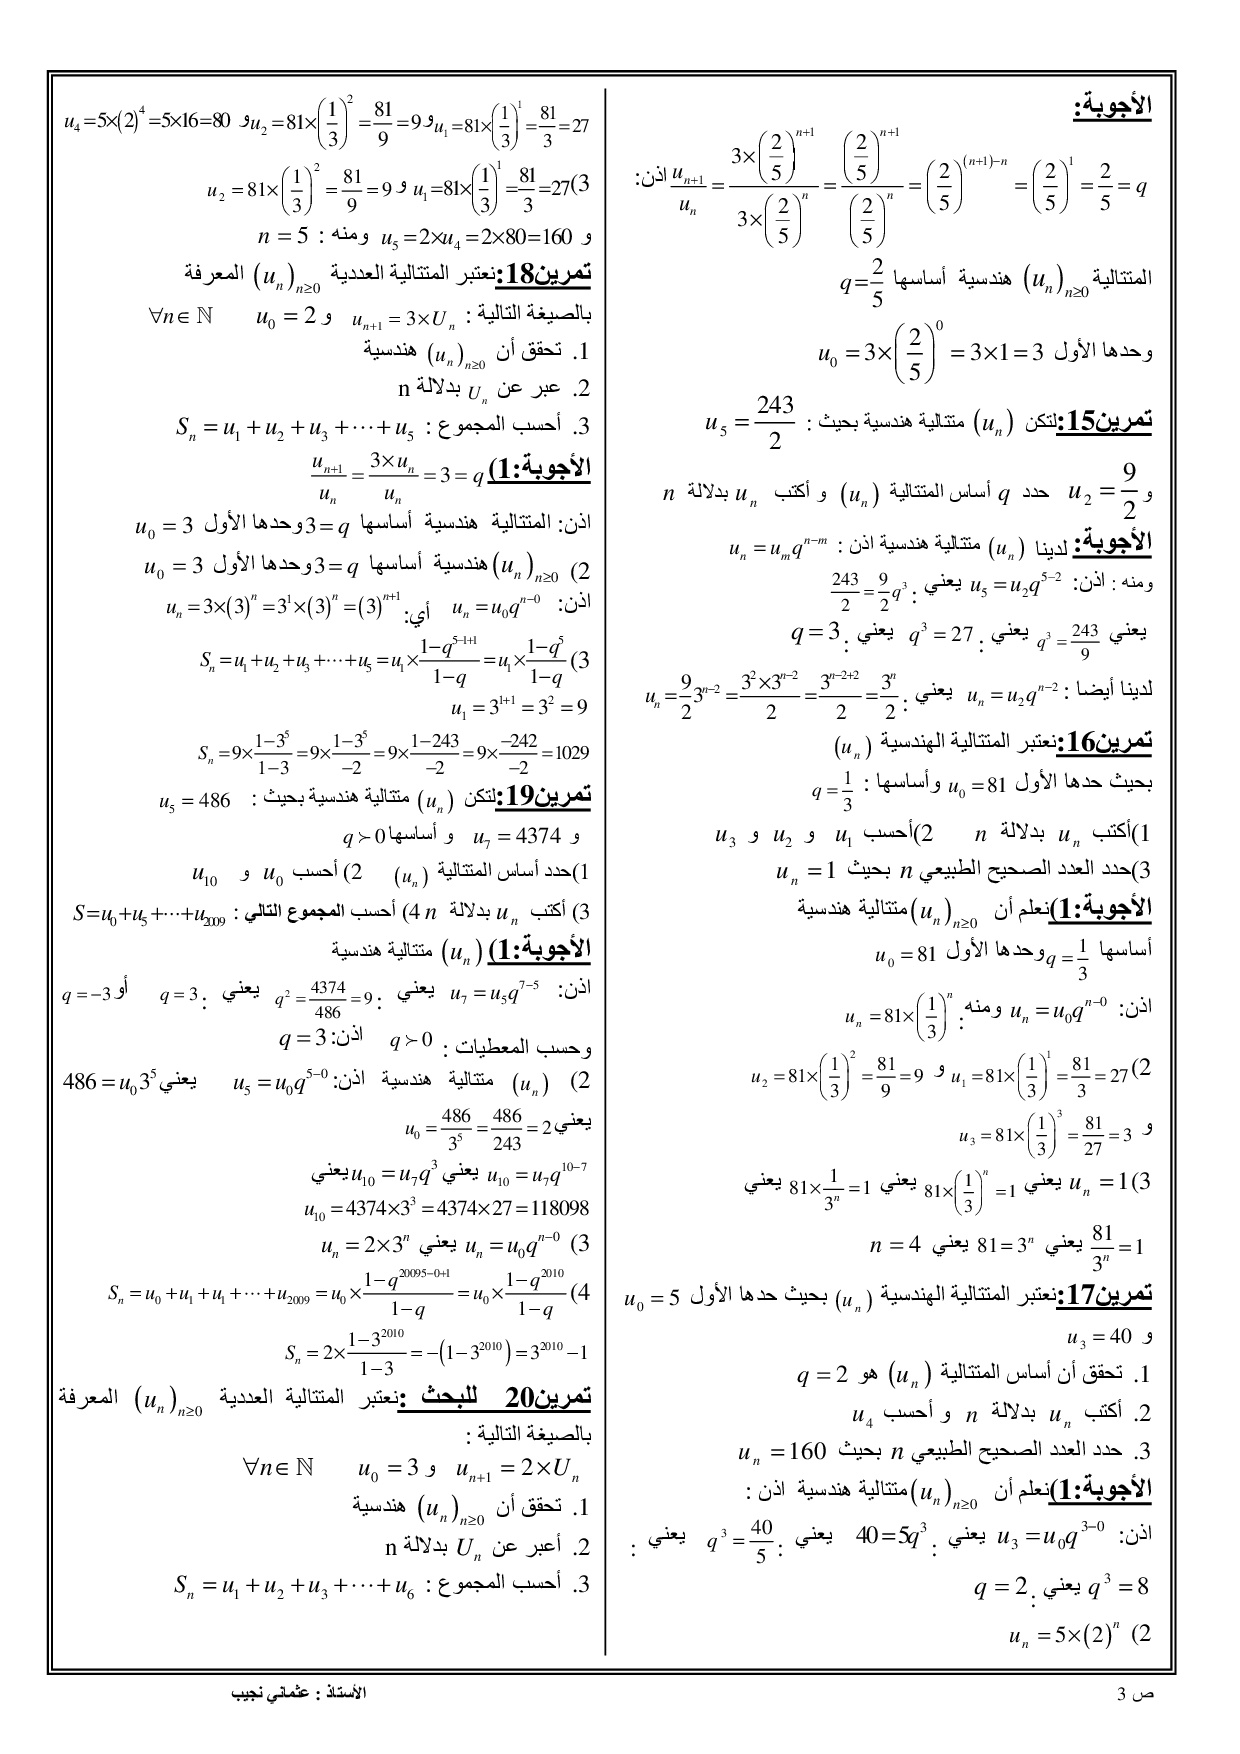 الأجوبة:
اذن: $\frac{u_{n+1}}{u_n} = \frac{3\times\left(\frac{2}{5}\right)^{n+1}}{3\times\left(\frac{2}{5}\right)^{n}} = \frac{\left(\frac{2}{5}\right)^{n+1}}{\left(\frac{2}{5}\right)^{n}} = \left(\frac{2}{5}\right)^{(n+1)-n} = \left(\frac{2}{5}\right)^{1} = \frac{2}{5} = q$
المتتالية $(u_n)_{n\geq 0}$ هندسية أساسها $q = \frac{2}{5}$
وحدها الأول $u_0 = 3\times\left(\frac{2}{5}\right)^{0} = 3\times 1 = 3$
تمرين15: لتكن $(u_n)$ متتالية هندسية بحيث : $u_5 = \frac{243}{2}$
و $u_2 = \frac{9}{2}$ حدد $q$ أساس المتتالية $(u_n)$ و أكتب $u_n$ بدلالة $n$
الأجوبة: لدينا $(u_n)$ متتالية هندسية اذن : $u_n = u_m q^{n-m}$
ومنه : اذن: $u_5 = u_2 q^{5-2}$ يعني : $\frac{243}{2} = \frac{9}{2} q^3$
يعني $q^3 = \frac{243}{9}$ يعني : $q^3 = 27$ يعني : $q = 3$
لدينا أيضا : $u_n = u_2 q^{n-2}$ يعني : $u_n = \frac{9}{2} 3^{n-2} = \frac{3^2 \times 3^{n-2}}{2} = \frac{3^{n-2+2}}{2} = \frac{3^n}{2}$
تمرين16: نعتبر المتتالية الهندسية $(u_n)$
بحيث حدها الأول $u_0 = 81$ وأساسها : $q = \frac{1}{3}$
1)أكتب $u_n$ بدلالة $n$ 2)أحسب $u_1$ و $u_2$ و $u_3$
3)حدد العدد الصحيح الطبيعي $n$ بحيث $u_n = 1$
الأجوبة:1)نعلم أن $(u_n)_{n\geq 0}$ متتالية هندسية
أساسها $q = \frac{1}{3}$ وحدها الأول $u_0 = 81$
اذن: $u_n = u_0 q^{n-0}$ ومنه: $u_n = 81\times\left(\frac{1}{3}\right)^{n}$
2) $u_1 = 81\times\left(\frac{1}{3}\right)^{1} = \frac{81}{3} = 27$ و $u_2 = 81\times\left(\frac{1}{3}\right)^{2} = \frac{81}{9} = 9$
و $u_3 = 81\times\left(\frac{1}{3}\right)^{3} = \frac{81}{27} = 3$
3) $u_n = 1$ يعني $81\times\left(\frac{1}{3}\right)^{n} = 1$ يعني $81\times\frac{1}{3^n} = 1$ يعني
$\frac{81}{3^n} = 1$ يعني $81 = 3^n$ يعني $n = 4$
تمرين17: نعتبر المتتالية الهندسية $(u_n)$ بحيث حدها الأول $u_0 = 5$
و $u_3 = 40$
1. تحقق أن أساس المتتالية $(u_n)$ هو $q = 2$
2. أكتب $u_n$ بدلالة $n$ و أحسب $u_4$
3. حدد العدد الصحيح الطبيعي $n$ بحيث $u_n = 160$
الأجوبة:1)نعلم أن $(u_n)_{n\geq 0}$ متتالية هندسية اذن :
اذن: $u_3 = u_0 q^{3-0}$ يعني : $40 = 5q^3$ يعني : $q^3 = \frac{40}{5}$ يعني :
$q^3 = 8$ يعني : $q = 2$
2) $u_n = 5\times(2)^n$
$u_1 = 81\times\left(\frac{1}{3}\right)^{1} = \frac{81}{3} = 27$ و $u_2 = 81\times\left(\frac{1}{3}\right)^{2} = \frac{81}{9} = 9$ و $u_4 = 5\times(2)^4 = 5\times 16 = 80$
3) $u_1 = 81\times\left(\frac{1}{3}\right)^{1} = \frac{81}{3} = 27$ و $u_2 = 81\times\left(\frac{1}{3}\right)^{2} = \frac{81}{9} = 9$
و $u_5 = 2\times u_4 = 2\times 80 = 160$ ومنه : $n = 5$
تمرين18: نعتبر المتتالية العددية $(u_n)_{n\geq 0}$ المعرفة
بالصيغة التالية : $u_{n+1} = 3\times U_n$ و $u_0 = 2$ $\forall n \in \mathbb{N}$
1. تحقق أن $(u_n)_{n\geq 0}$ هندسية
2. عبر عن $U_n$ بدلالة n
3. أحسب المجموع : $S_n = u_1 + u_2 + u_3 + \cdots + u_5$
الأجوبة:1) $\frac{u_{n+1}}{u_n} = \frac{3\times u_n}{u_n} = 3 = q$
اذن: المتتالية هندسية أساسها $3 = q$ وحدها الأول $u_0 = 3$
2) $(u_n)_{n\geq 0}$ هندسية أساسها $3 = q$ وحدها الأول $u_0 = 3$
اذن: $u_n = u_0 q^{n-0}$ أي: $u_n = 3\times(3)^n = 3^1\times(3)^n = (3)^{n+1}$
3) $S_n = u_1 + u_2 + u_3 + \cdots + u_5 = u_1 \times \frac{1-q^{5-1+1}}{1-q} = u_1 \times \frac{1-q^5}{1-q}$
$u_1 = 3^{1+1} = 3^2 = 9$
$S_n = 9\times\frac{1-3^5}{1-3} = 9\times\frac{1-3^5}{-2} = 9\times\frac{1-243}{-2} = 9\times\frac{-242}{-2} = 1029$
تمرين19: لتكن $(u_n)$ متتالية هندسية بحيث : $u_5 = 486$
و $u_7 = 4374$ و أساسها $q \succ 0$
1)حدد أساس المتتالية $(u_n)$ 2) أحسب $u_0$ و $u_{10}$
3) أكتب $u_n$ بدلالة $n$ 4) أحسب المجموع التالي : $S = u_0 + u_5 + \cdots + u_{2009}$
الأجوبة:1) $(u_n)$ متتالية هندسية
اذن: $u_7 = u_5 q^{7-5}$ يعني : $q^2 = \frac{4374}{486} = 9$ يعني : $q = 3$ أو $q = -3$
وحسب المعطيات : $q \succ 0$ اذن: $q = 3$
2) $(u_n)$ متتالية هندسية اذن: $u_5 = u_0 q^{5-0}$ يعني $486 = u_0 3^5$
يعني $u_0 = \frac{486}{3^5} = \frac{486}{243} = 2$
$u_{10} = u_7 q^{10-7}$ يعني $u_{10} = u_7 q^3$ يعني
$u_{10} = 4374\times 3^3 = 4374\times 27 = 118098$
3) $u_n = u_0 q^{n-0}$ يعني $u_n = 2\times 3^n$
4) $S_n = u_0 + u_1 + u_1 + \cdots + u_{2009} = u_0 \times \frac{1-q^{20095-0+1}}{1-q} = u_0 \times \frac{1-q^{2010}}{1-q}$
$S_n = 2\times\frac{1-3^{2010}}{1-3} = -\left(1-3^{2010}\right) = 3^{2010} - 1$
تمرين20 للبحث :نعتبر المتتالية العددية $(u_n)_{n\geq 0}$ المعرفة
بالصيغة التالية :
$u_{n+1} = 2\times U_n$ و $u_0 = 3$ $\forall n \in \mathbb{N}$
1. تحقق أن $(u_n)_{n\geq 0}$ هندسية
2. أعبر عن $U_n$ بدلالة n
3. أحسب المجموع : $S_n = u_1 + u_2 + u_3 + \cdots + u_6$
ص 3
الأستاذ : عثماني نجيب